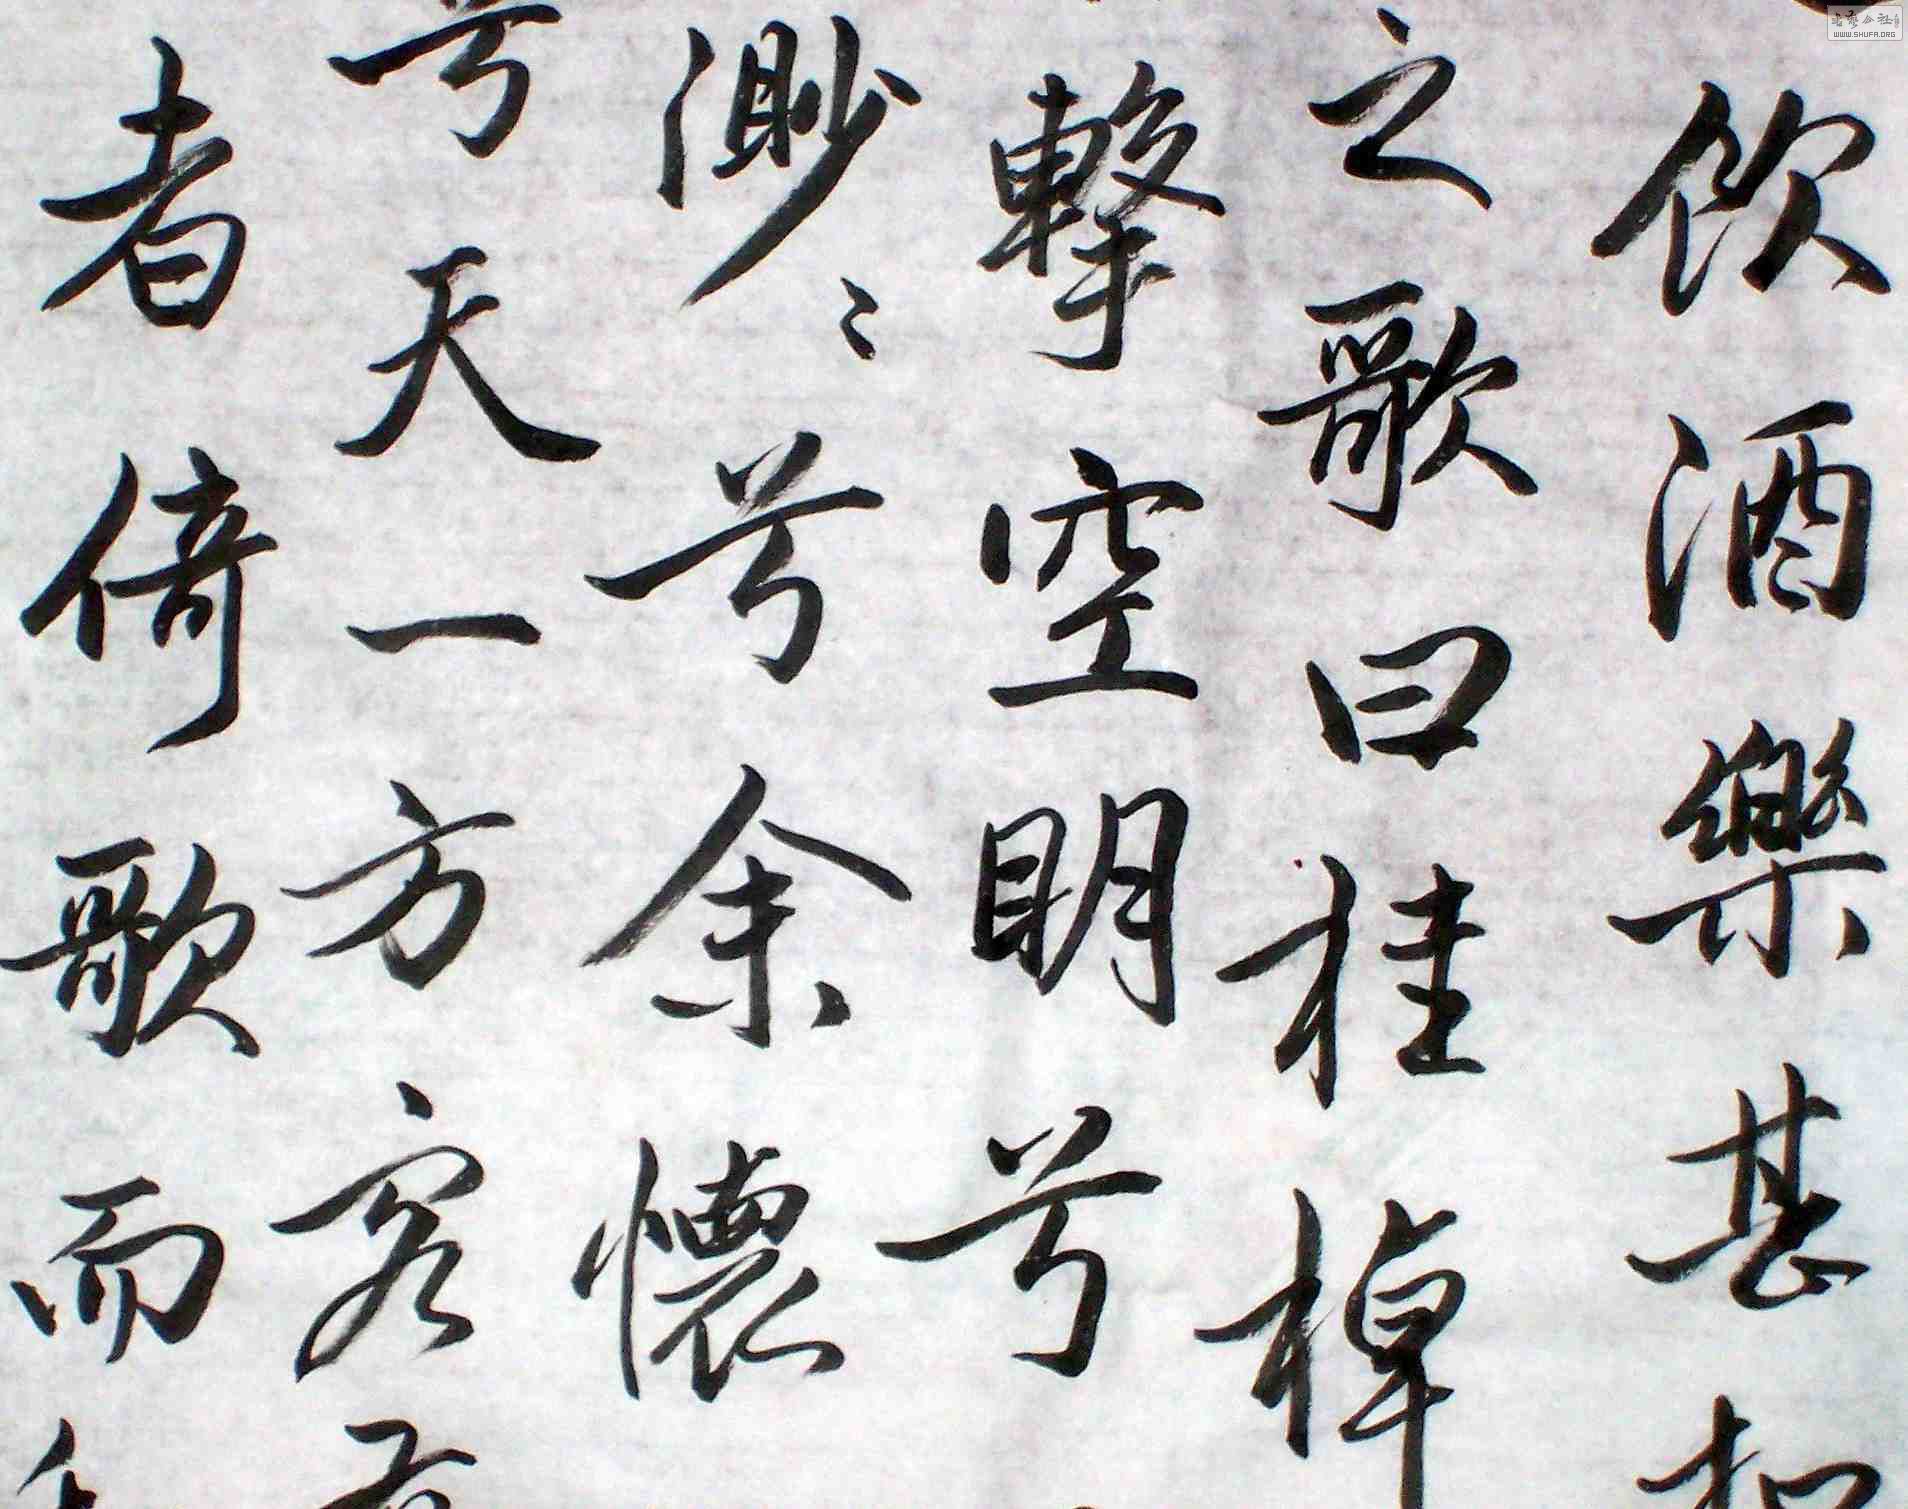 飲酒樂甚扣
之歌曰桂棹
擊空明兮
渺〻兮余懷
兮天一方客
者倚歌而
WWW.SHUFA.ORG